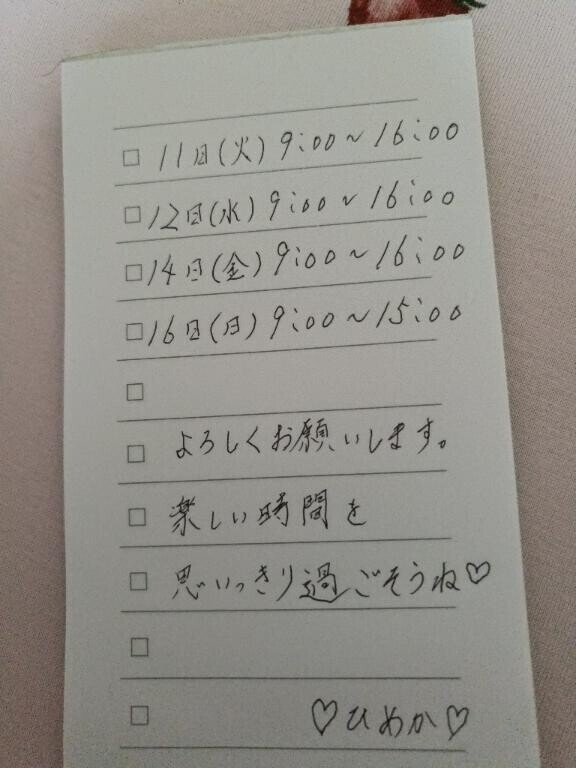 11日(火) 9:00~16:00
12日(水) 9:00~16:00
14日(金) 9:00~16:00
16日(日) 9:00~15:00
よろしくお願いします。
楽しい時間を
思いっきり過ごそうね♡
♡ひめか♡